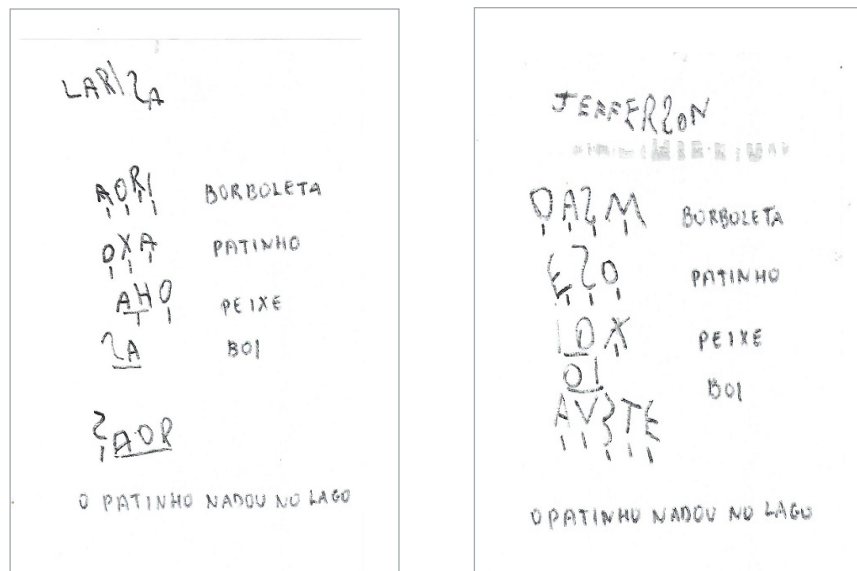 LARISA
AORI BORBOLETA
OXA PATINHO
AHO PEIXE
SA BOI
SAOR
O PATINHO NADOU NO LAGO
JEFFERSON
OASM BORBOLETA
ESO PATINHO
IOX PEIXE
OI BOI
AVSTE
O PATINHO NADOU NO LAGO